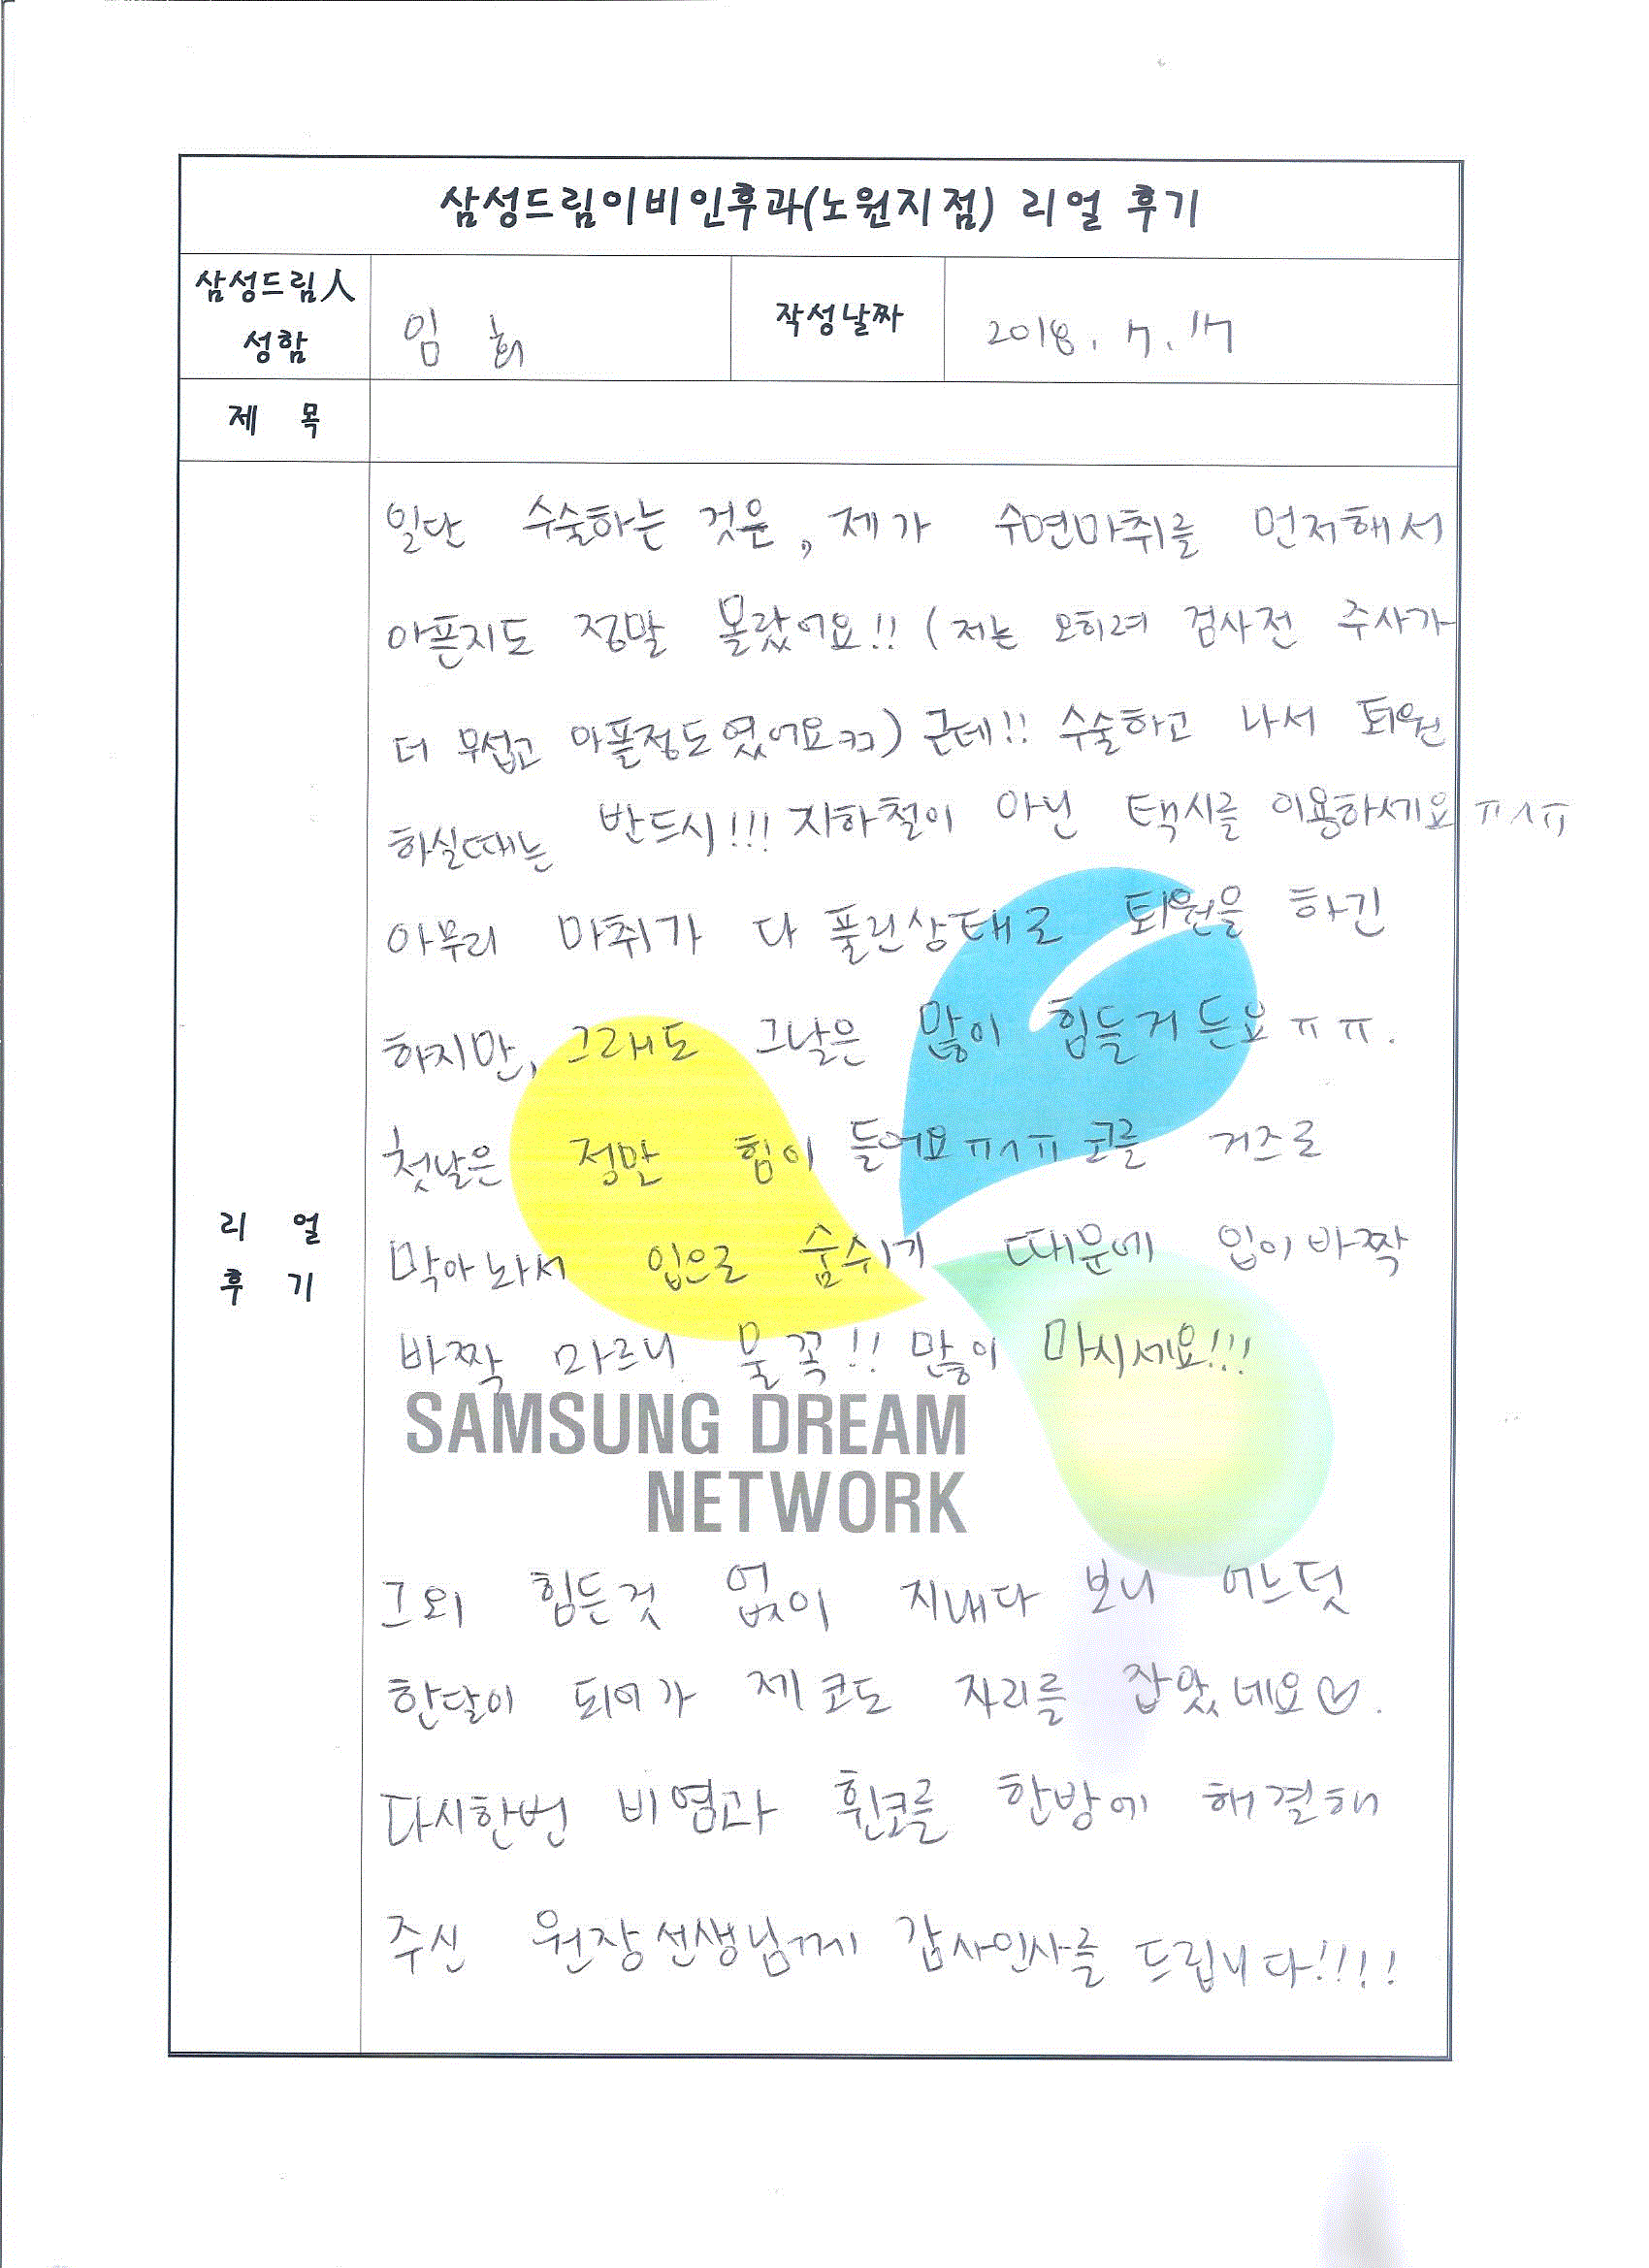 삼성드림이비인후과(노원지점) 리얼 후기
삼성드림人 성함
임 희
작성날짜
2018. 7. 17
제 목
리 얼 후 기
일단 수술하는 것은, 제가 수면마취를 먼저해서
아픈지도 정말 몰랐어요!! (저는 오히려 검사전 주사가
더 무섭고 아플정도였어요ㅋㅋ) 근데!! 수술하고 나서 퇴원
하실때는 반드시!!! 지하철이 아닌 택시를 이용하세요ㅠㅅㅠ
아무리 마취가 다 풀린상태로 퇴원을 하긴
하지만, 그래도 그날은 많이 힘들거든요ㅠㅠ.
첫날은 정말 힘이 들어요ㅠㅅㅠ 코를 거즈로
막아놔서 입으로 숨쉬기 때문에 입이바짝
바짝 마르니 물 꼭!! 많이 마시세요!!!
SAMSUNG DREAM
NETWORK
그외 힘든것 없이 지내다 보니 어느덧
한달이 되어가 제 코도 자리를 잡았네요♡.
다시한번 비염과 휜코를 한방에 해결해
주신 원장선생님께 감사인사를 드립니다!!!!